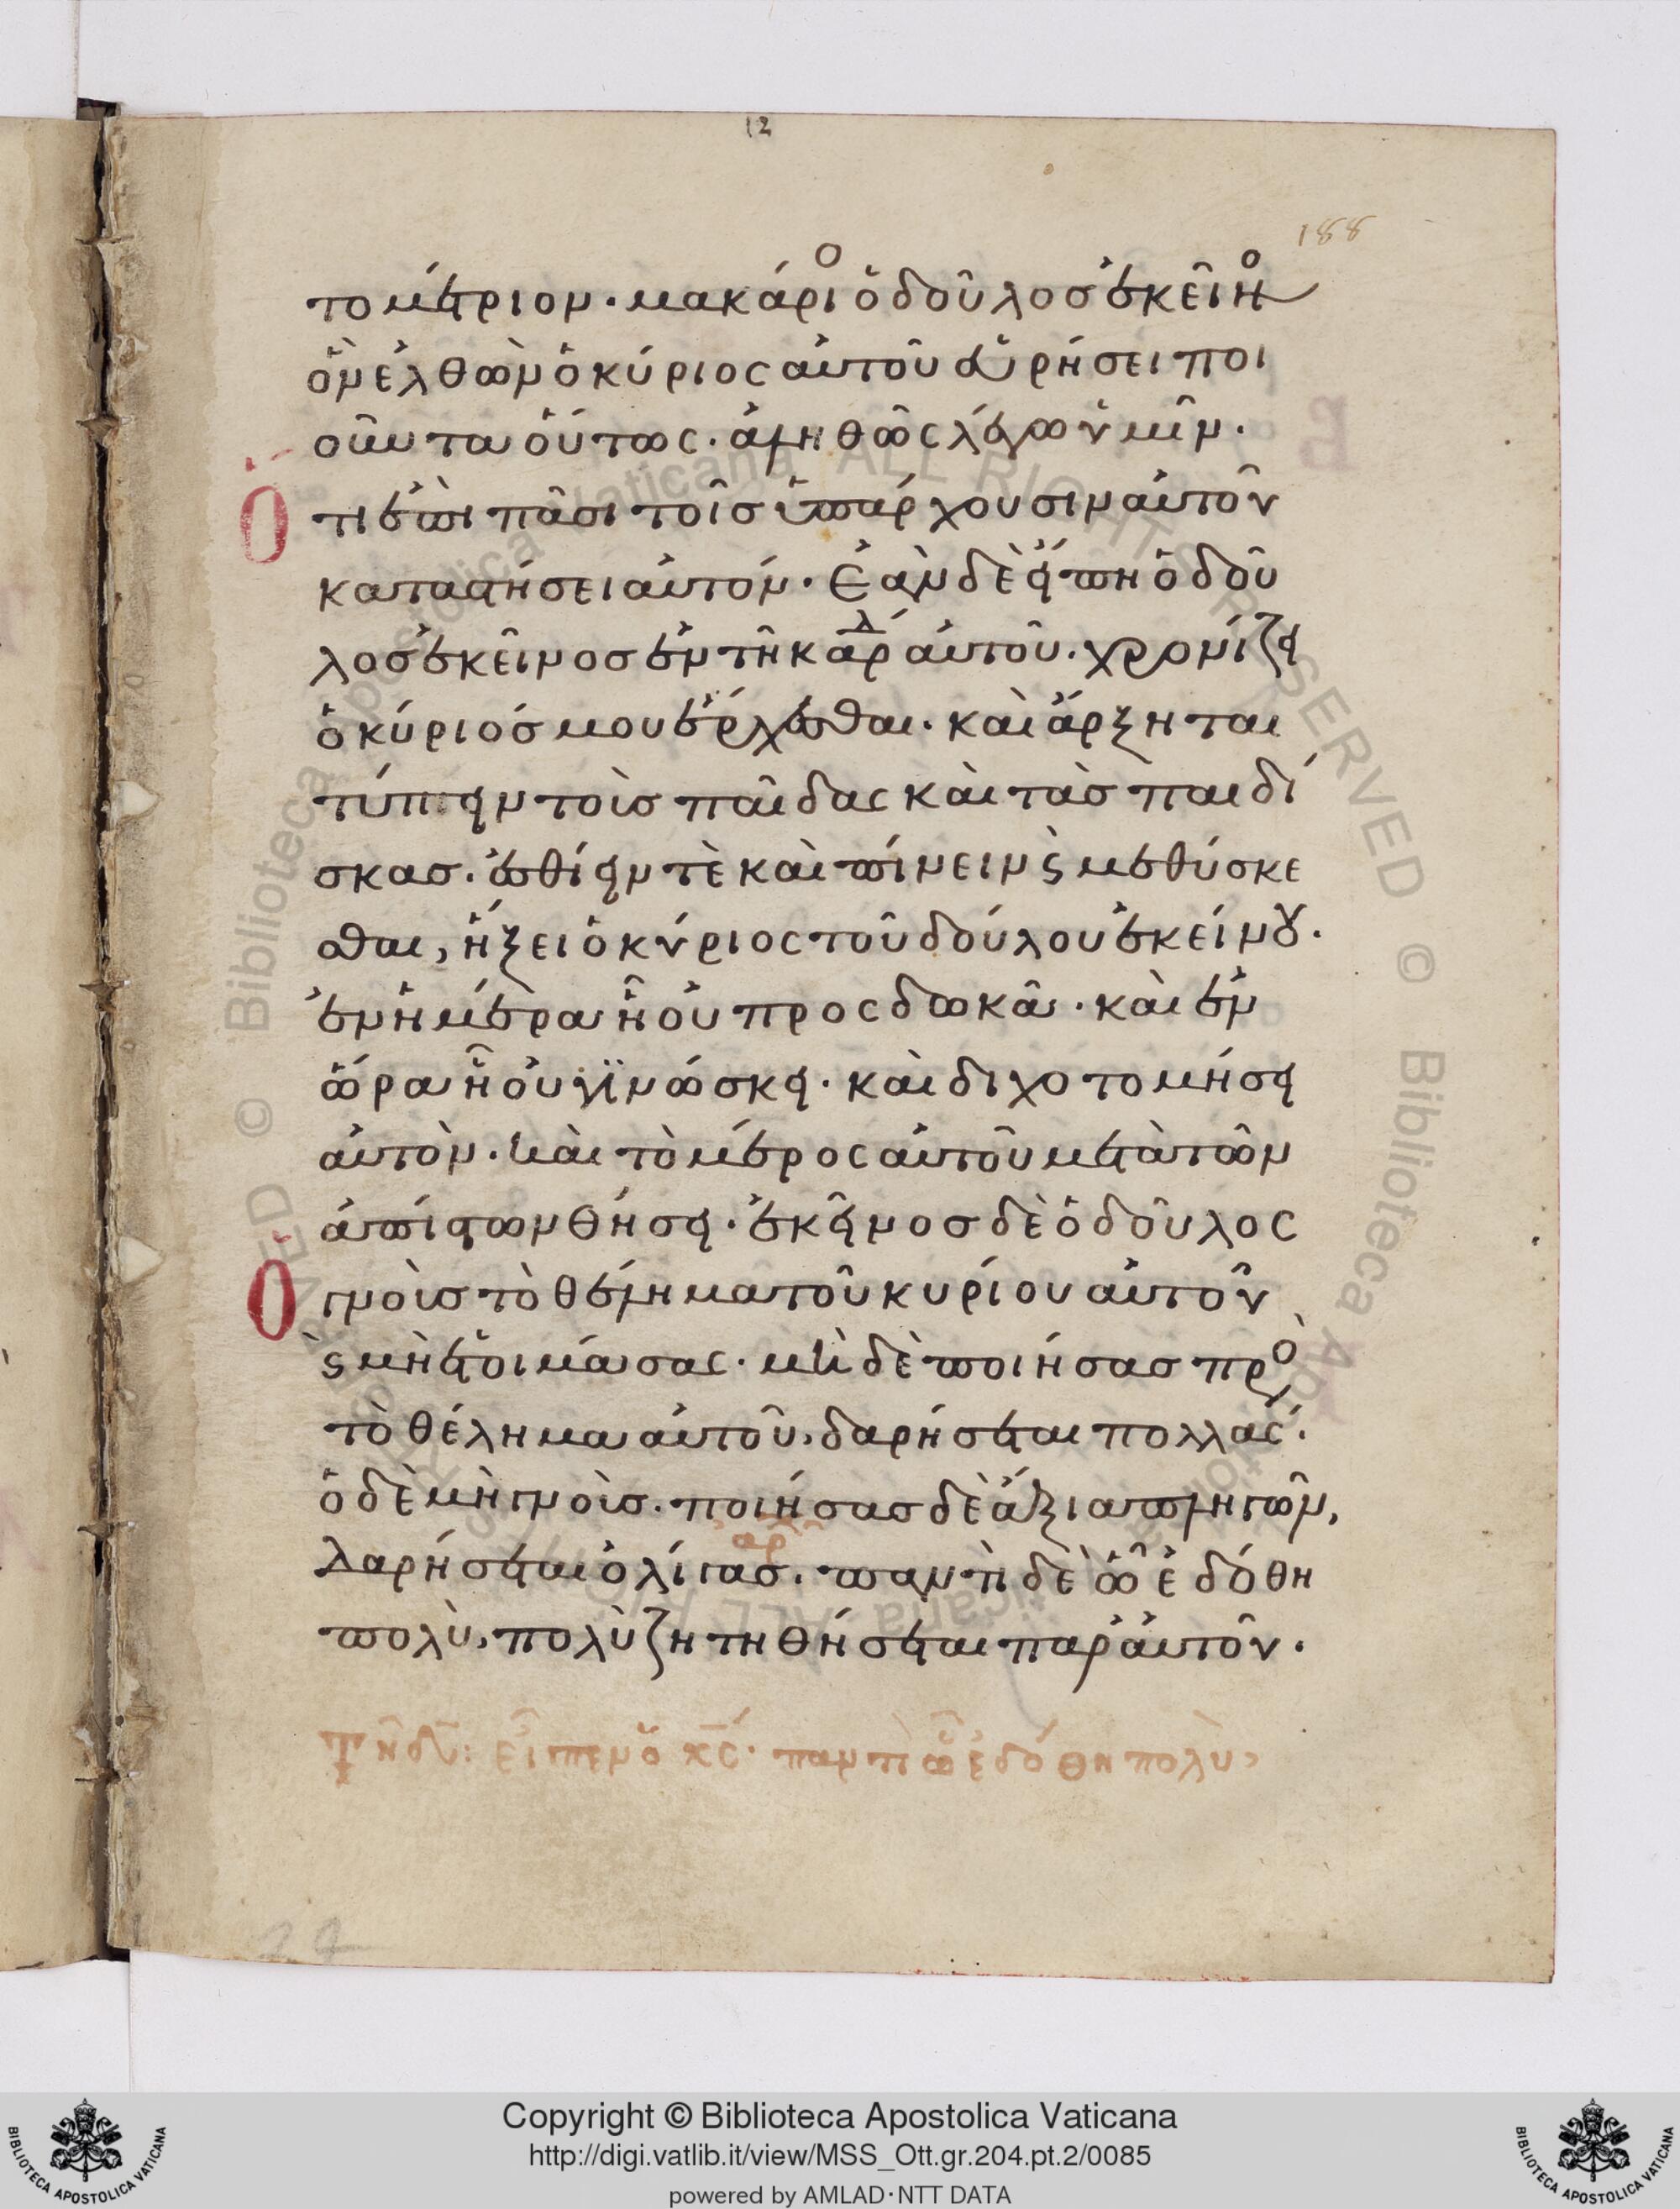 12
188
τομέτριον. μακάριο ὁ δοῦλος ἐκεῖνο
ὃν ἐλθὼν ὁ κύριος αὐτοῦ εὑρήσει ποι
οῦντα οὕτως. ἀληθῶς λέγω ὑμῖν.
Ὅτι ἐπὶ πᾶσι τοῖς ὑπάρχουσιν αὐτοῦ
καταστήσει αὐτόν. Ἐὰν δὲ εἴπη ὁ δοῦ
λος ἐκεῖνος ἐν τῆ καρδ αὐτοῦ. χρονίζει
ὁ κύριός μου ἔρχεσθαι. καὶ ἄρξηται
τύπτειν τοὺς παῖδας καὶ τὰς παιδί
σκας. ἐσθίειν τὲ καὶ πίνειν ϛ μεθύσκε
σθαι, ἥξει ὁ κύριος τοῦ δούλου ἐκείνου.
ἐν ἡμέρα ἧ οὐ προσδωκᾶ. καὶ ἐν
ὥρα ἧ οὐ γϊνώσκει. καὶ διχοτομήσει
αὐτὸν. καὶ τὸ μέρος αὐτοῦ μετὰ τῶν
ἀπίστων θήσει. ἐκεῖνος δὲ ὁ δοῦλος
Ὁ γνοὺς τὸ θέλημα τοῦ κυρίου αὐτοῦ
ϛ μὴ ἑτοιμάσας. μὴ δὲ ποιήσας πρὸ
τὸ θέλημα αὐτοῦ, δαρήσεται πολλάς.
ὁ δὲ μὴ γνοὺς. ποιήσας δὲ ἄξια πληγῶν,
δαρήσεται ὀλίγας. παντὶ δὲ ὧ ἐδόθη
πολὺ, πολὺ ζητηθήσεται παρ' αὐτοῦ.
εἶπεν ὁ κς. παντὶ ὧ ἐδόθη πολὺ,
Copyright © Biblioteca Apostolica Vaticana
http://digi.vatlib.it/view/MSS_Ott.gr.204.pt.2/0085
powered by AMLAD·NTT DATA
BIBLIOTECA APOSTOLICA VATICANA
BIBLIOTECA APOSTOLICA VATICANA